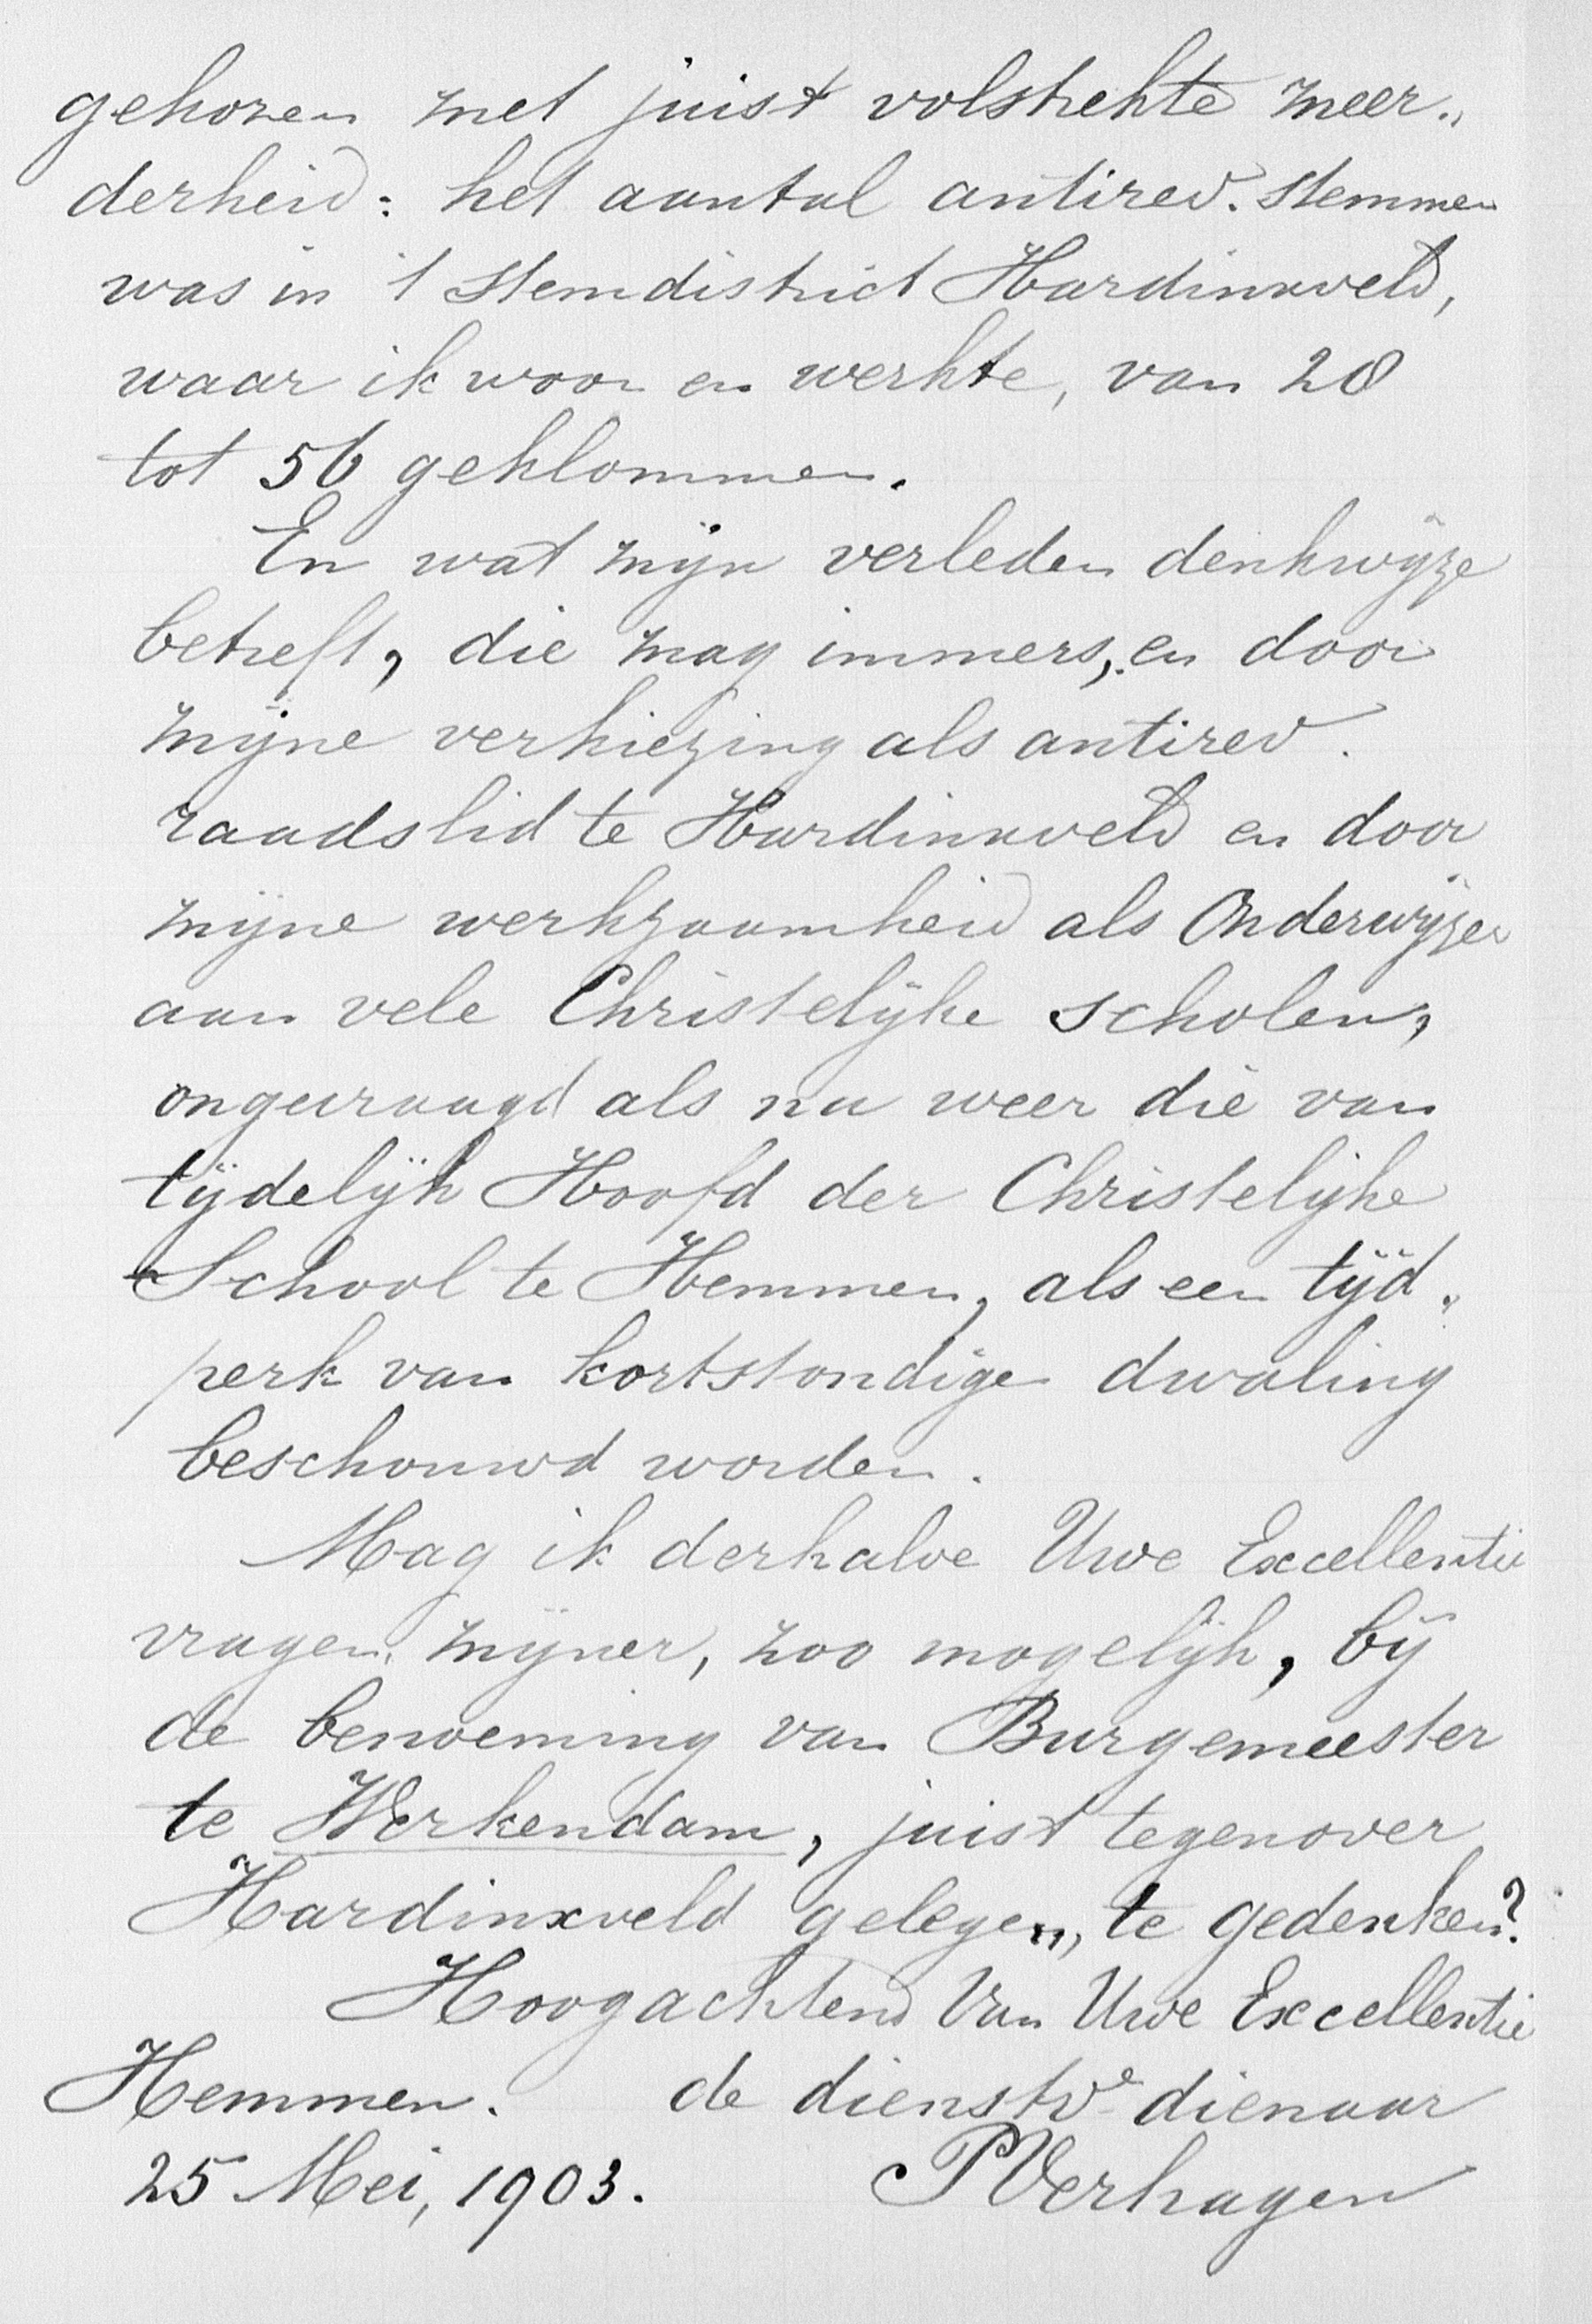 gekozen met juist volstrekte meer„
derheid: het aantal antirev. stemmen
was in 't stemdistrict Hardinxveld,
waar ik woon en werkte, van 28
tot 56 geklommen.
En wat mijn verleden denkwijze
betreft, die mag immers, en door
mijne verkiezing als antirev.
raadslid te Hardinxveld en door
mijne werkzaamheid als Onderwijzer
aan vele Christelijke scholen,
ongevraagd als nu weer die van
tijdelijk Hoofd der Christelijke
School te Hemmen, als een tijd„
perk van kortstondige dwaling
beschouwd worden.
Mag ik derhalve Uwe Excellentie
vragen, mijner, zoo mogelijk, bij
de benoeming van Burgemeester
te Werkendam, juist tegenover
Hardinxveld gelegen, te gedenken?
Hoogachtend Van Uwe Excellentie
Hemmen. de dienstve dienaar
25 Mei, 1903. PVerhagen